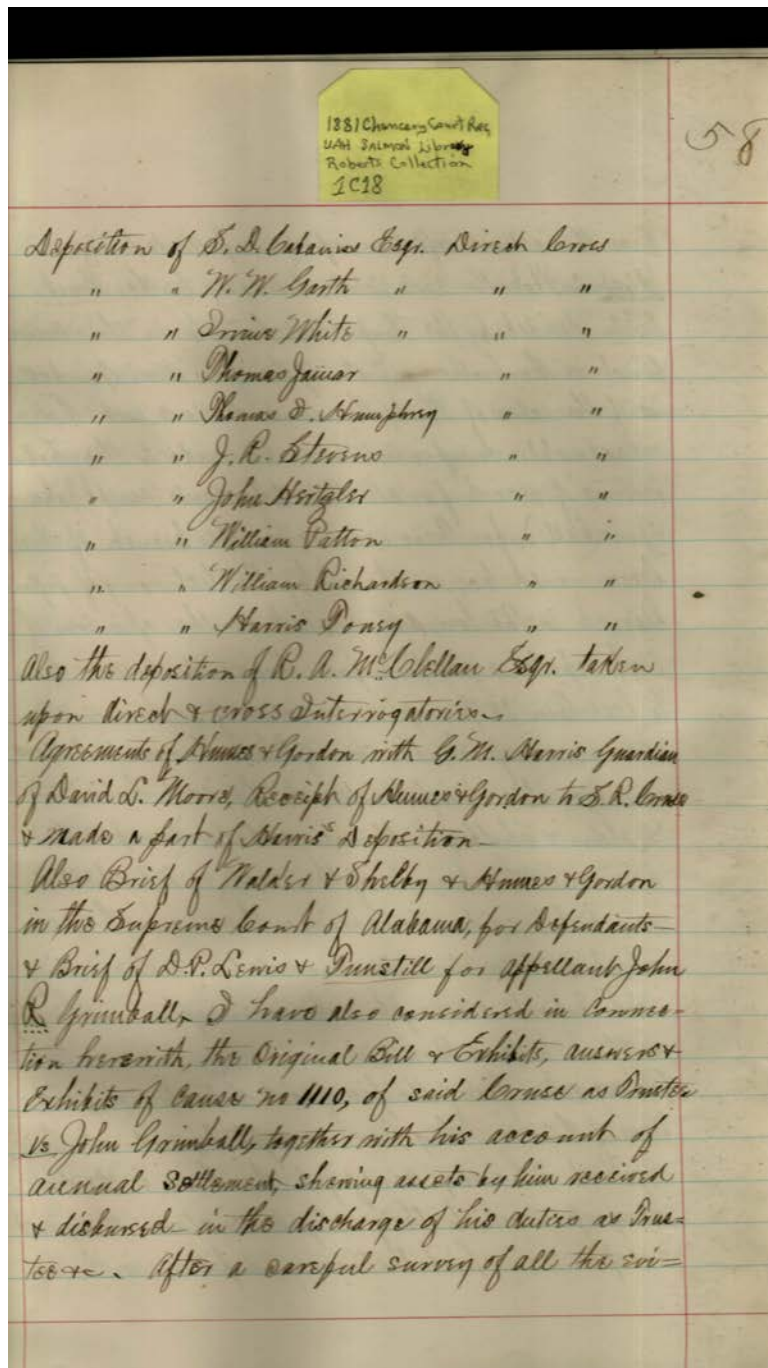 1881 Chancery Court Rec
UAH SALMON Library
Roberts Collection
1C18
58
Deposition of S. D. Cabaniss Esqr. Direct Cross
" " W. W. Garth " " "
" " Irvine White " " "
" " Thomas Jamar " "
" " Thomas J. Humphrey " "
" " J. R. Stevens " "
" " John Hertzler " "
" " William Patton " "
" " William Richardson " "
" " Harris Toney " "
Also the deposition of R. A. McClellan Esqr. taken
upon direct & cross Interrogatories
Agreements of Humes & Gordon with G. M. Harris Guardian
of David L. Moore, Receipt of Humes & Gordon to S. R. Cruse
& made a part of Harris's Deposition
Also Brief of Walker & Shelby & Humes & Gordon
in the Supreme Court of Alabama, for Defendants
& Brief of D. P. Lewis & Tunstill for appellant John
R Grimball, I have also considered in connec-
tion herewith, the Original Bill & Exhibits, answers &
Exhibits of cause no 1110, of said Cruse as Trustee
vs John Grimball, together with his account of
annual Settlement, shewing assets by him received
& disbursed in the discharge of his duties as Trus=
tee &c. After a careful survey of all the evi=